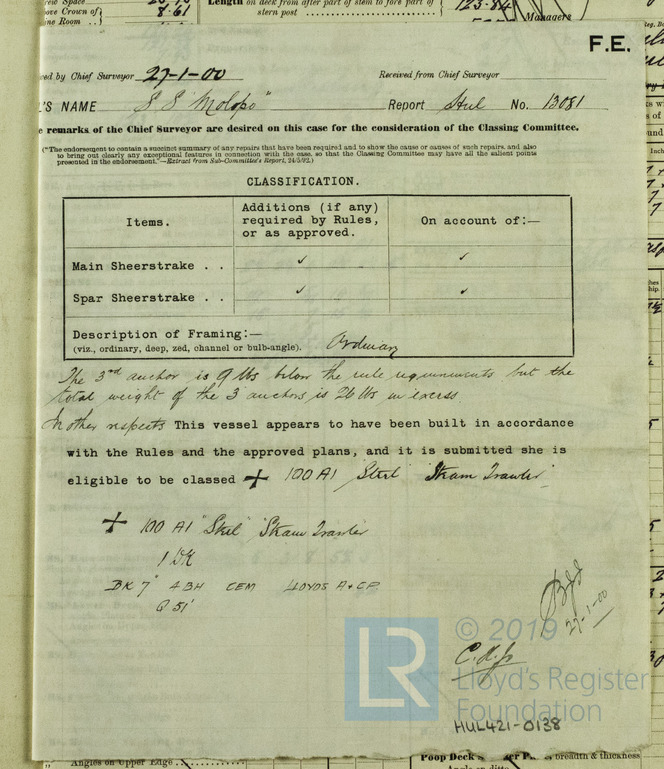 Length on deck from after part of stem to fore part of
stern post
123.84
ove Crown of
8.61
ine Room
Managers
F.E.
ed by Chief Surveyor 27-1-00 Received from Chief Surveyor
'S NAME S S "Molopo" Report Hul No. 13081
e remarks of the Chief Surveyor are desired on this case for the consideration of the Classing Committee.
("The endorsement to contain a succinct summary of any repairs that have been required and to show the cause or causes of such repairs, and also
to bring out clearly any exceptional features in connection with the case, so that the Classing Committee may have all the salient points
presented in the endorsement."—Extract from Sub-Committee's Report, 24/5/92.)
CLASSIFICATION.
Items.
Additions (if any)
required by Rules,
or as approved.
On account of:—
Main Sheerstrake . . ✓ ✓
Spar Sheerstrake . . ✓ ✓
Description of Framing:—
(viz., ordinary, deep, zed, channel or bulb-angle). Ordinary
The 3rd anchor is 9 lbs below the rule requirements but the
total weight of the 3 anchors is 26 lbs in excess
In other respects This vessel appears to have been built in accordance
with the Rules and the approved plans, and it is submitted she is
eligible to be classed + 100 A1 "Steel" "Steam Trawler"
+ 100 A1 "Steel" "Steam Trawler"
1 DK
BK 7" 4 BH CEM LLOYDS A & CP
Q 51'
27-1-00
© 2019
Lloyd's Register
Foundation
LR
HUL421-0138
Angles on Upper Edge
Poop Deck
breadth & thickness